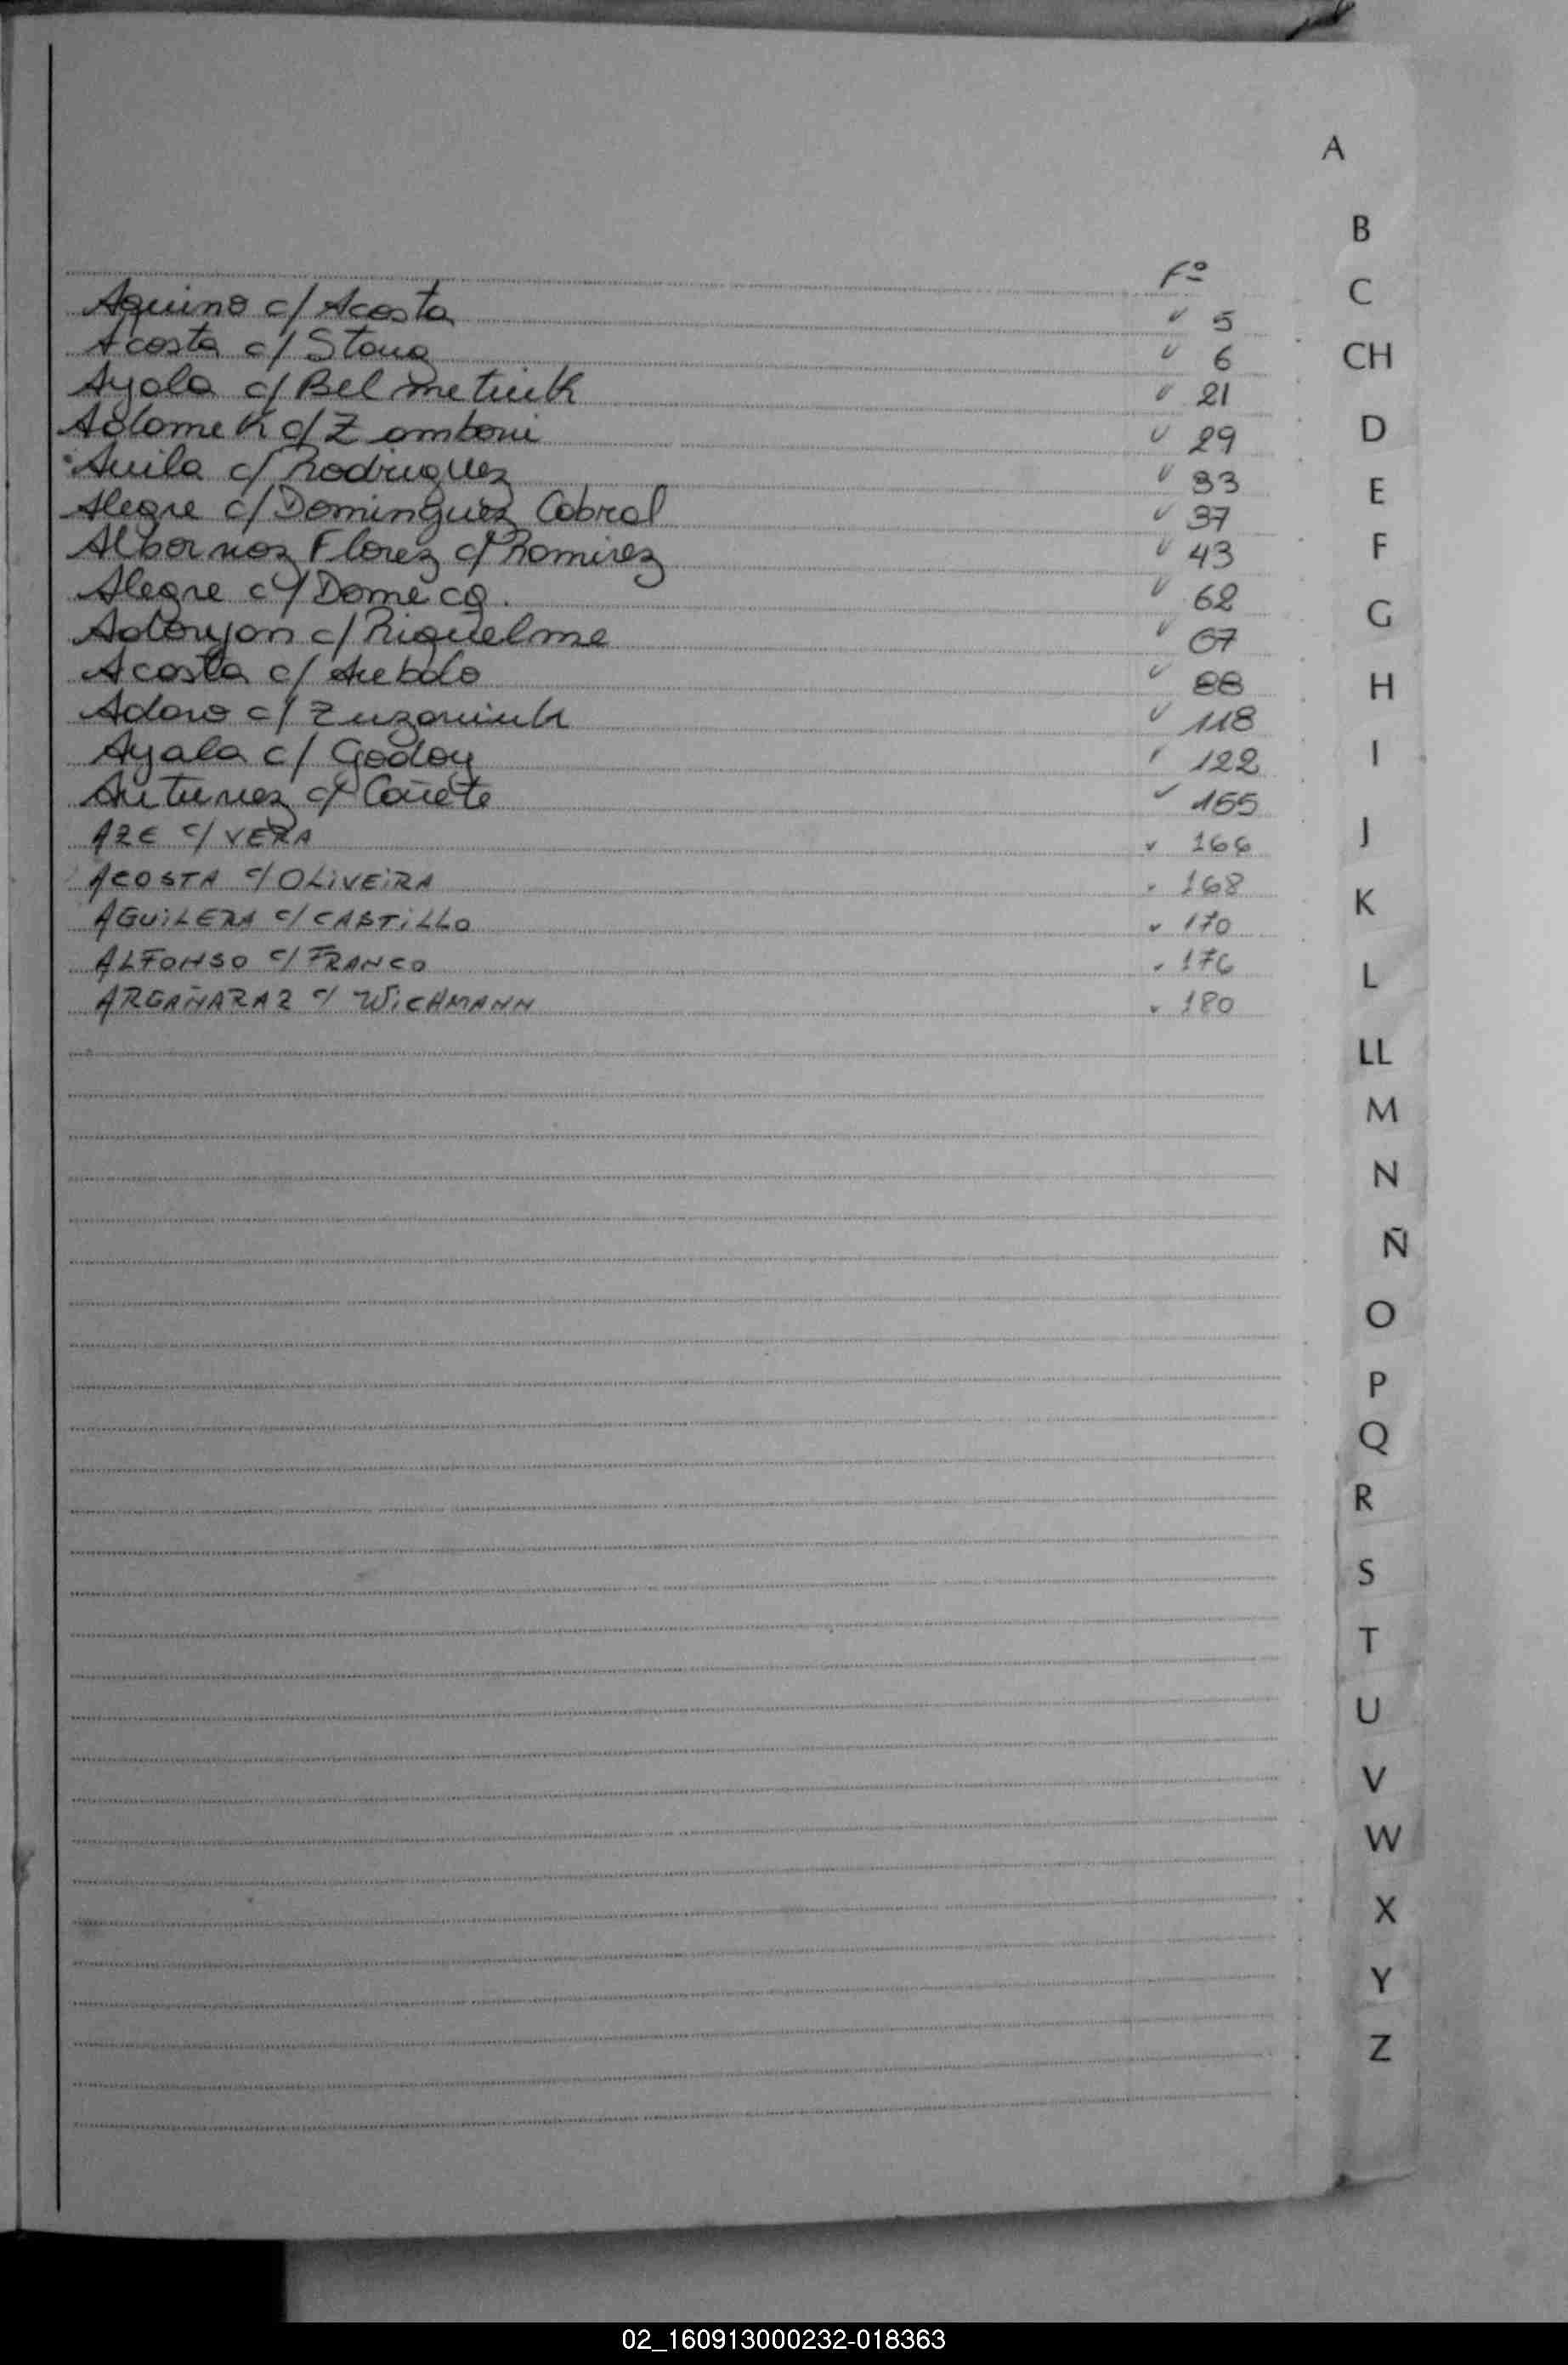 Fº
Aquino c/ Acosta ✓ 5
Acosta c/ Stang ✓ 6
Ayala c/ Belmetiuk ✓ 21
Adamek c/ Zamboni ✓ 29
Avila c/ Rodriguez ✓ 33
Alegre c/ Dominguez Cabral ✓ 37
Albornoz Florez c/ Ramirez ✓ 43
Alegre c/ Domecq. ✓ 62
Adoryan c/ Riquelme ✓ 67
Acosta c/ ✓ 88
Adaro c/ ✓ 118
Ayala c/ Godoy ✓ 122
Antunez c/ Cañete ✓ 155
AZE c/ VERA ✓ 166
ACOSTA c/ OLIVEIRA ✓ 168
AGUILERA c/ CASTILLO ✓ 170
ALFONSO c/ FRANCO ✓ 176
ARGAÑARAZ c/ WICHMANN ✓ 180
A
B
C
CH
D
E
F
G
H
I
J
K
L
LL
M
N
Ñ
O
P
Q
R
S
T
U
V
W
X
Y
Z
02_160913000232-018363